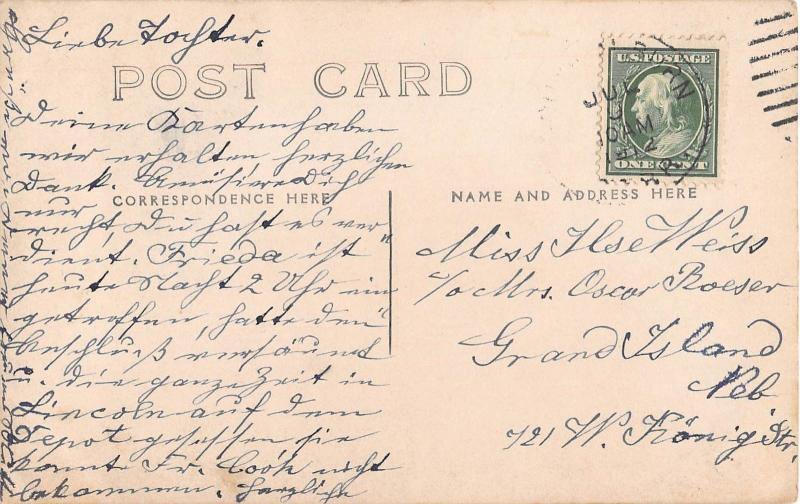 Liebe Tochter.
POST CARD
Deine Karten haben
wir erhalten herzlichen
Dank. Amüsire Dich
CORRESPONDENCE HERE
nur
recht, Du hast es ver
dient. Frieda ist
heute Nacht 2 Uhr ein
getroffen, hatte den
Anschluß versäumt
u. die ganze Zeit in
Lincoln auf dem
Depot gesessen sie
konnte Fr. Cook nicht
bekommen. Herzliche
U.S. POSTAGE
ONE CENT
JUL
AM
NAME AND ADDRESS HERE
Miss Ilse Weiss
c/o Mrs. Oscar Roeser
Grand Island
Neb
721 W. König Str.